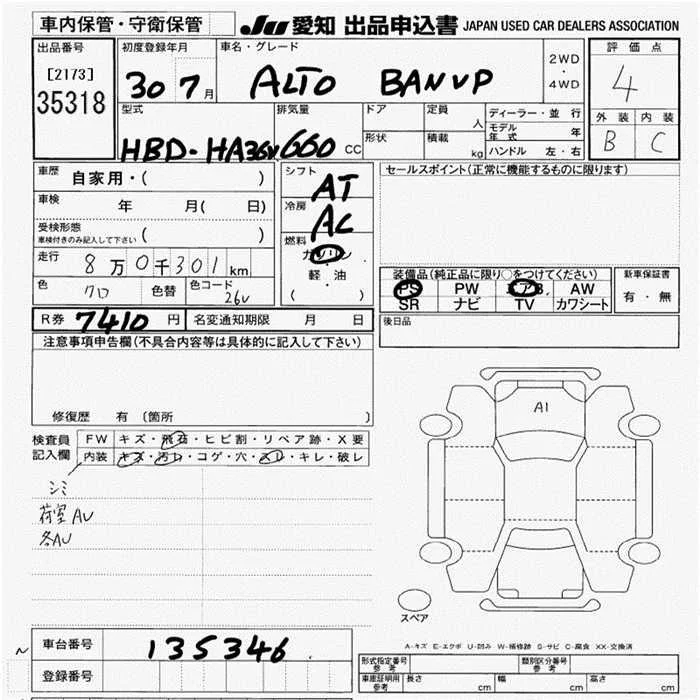 車内保管・守衛保管
JU 愛知 出品申込書 JAPAN USED CAR DEALERS ASSOCIATION
出品番号
[2173]
35318
初度登録年月
30 7月
車名・グレード
ALTO BANVP
2WD
・
4WD
評価点
4
外装 内装
B C
型式
HBD-HA36V
排気量
660 CC
ドア
形状
定員
人
積載
kg
ディーラー・並行
モデル年式 年
ハンドル 左・右
車歴 自家用・( )
車検 年 月( 日)
受検形態
車検付きのみ記入して下さい ( )
走行 8万0千301km
色 クロ 色替 色コード 26V
シフト
AT
冷房
AC
燃料
ガソリン
軽・油
( )
セールスポイント(正常に機能するものに限ります)
装備品(純正品に限り○をつけてください)
PS PW エアB AW
SR ナビ TV カワシート
新車保証書
有・無
R券 7410 円 名変通知期限 月 日
後日品
注意事項申告欄(不具合内容等は具体的に記入して下さい)
修復歴 有 〔箇所 〕
検査員記入欄
FW キズ・飛石・ヒビ割・リペア跡・X要
内装 キズ・汚レ・コゲ・穴・スレ・キレ・破レ
シミ
荷室AU
各AU
A1
スペア
A-キズ E-エクボ U-凹み W-補修跡 S-サビ C-腐食 XX-交換済
車台番号 135346
登録番号
型式指定番号 参考
類別区分番号 参考
車庫証明用 参考
長さ cm
幅 cm
高さ cm